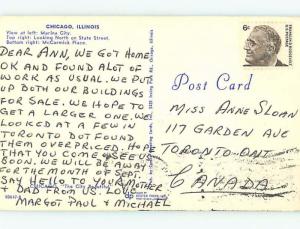 CHICAGO, ILLINOIS
View at left: Marina City
Top right: Looking North on State Street.
Bottom right: McCormick Place.
DEAR ANN, WE GOT HOME
OK AND FOUND ALOT OF
WORK AS USUAL. WE PUT
UP BOTH OUR BUILDINGS
FOR SALE. WE HOPE TO
GET A LARGER ONE. WE
LOOKED AT A FEW IN
TORONTO BUT FOUND
THEM OVERPRICED. HOPE
THAT YOU COME & SEE US
SOON. WE WILL BE AWAY
FOR THE MONTH OF SEPT.
SAY HELLO TO YOUR MOTHER
& DAD FROM US. LOVE
MARGOT PAUL & MICHAEL
Post Card
6¢
MISS ANNE SLOAN
117 GARDEN AVE
TORONTO-ONT
CANADA